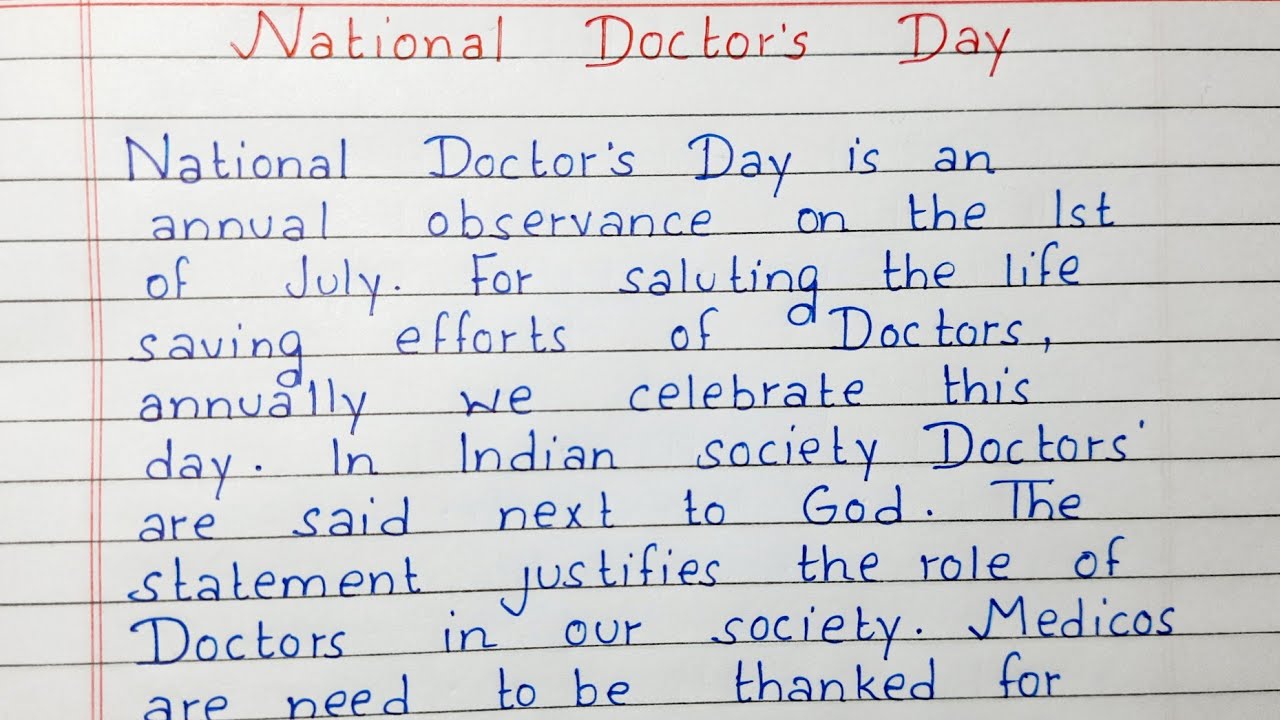 National Doctor's Day
National Doctor's Day is an
annual observance on the 1st
of July. For saluting the life
saving efforts of Doctors,
annually we celebrate this
day. In Indian society Doctors'
are said next to God. The
statement justifies the role of
Doctors in our society. Medicos
are need to be thanked for